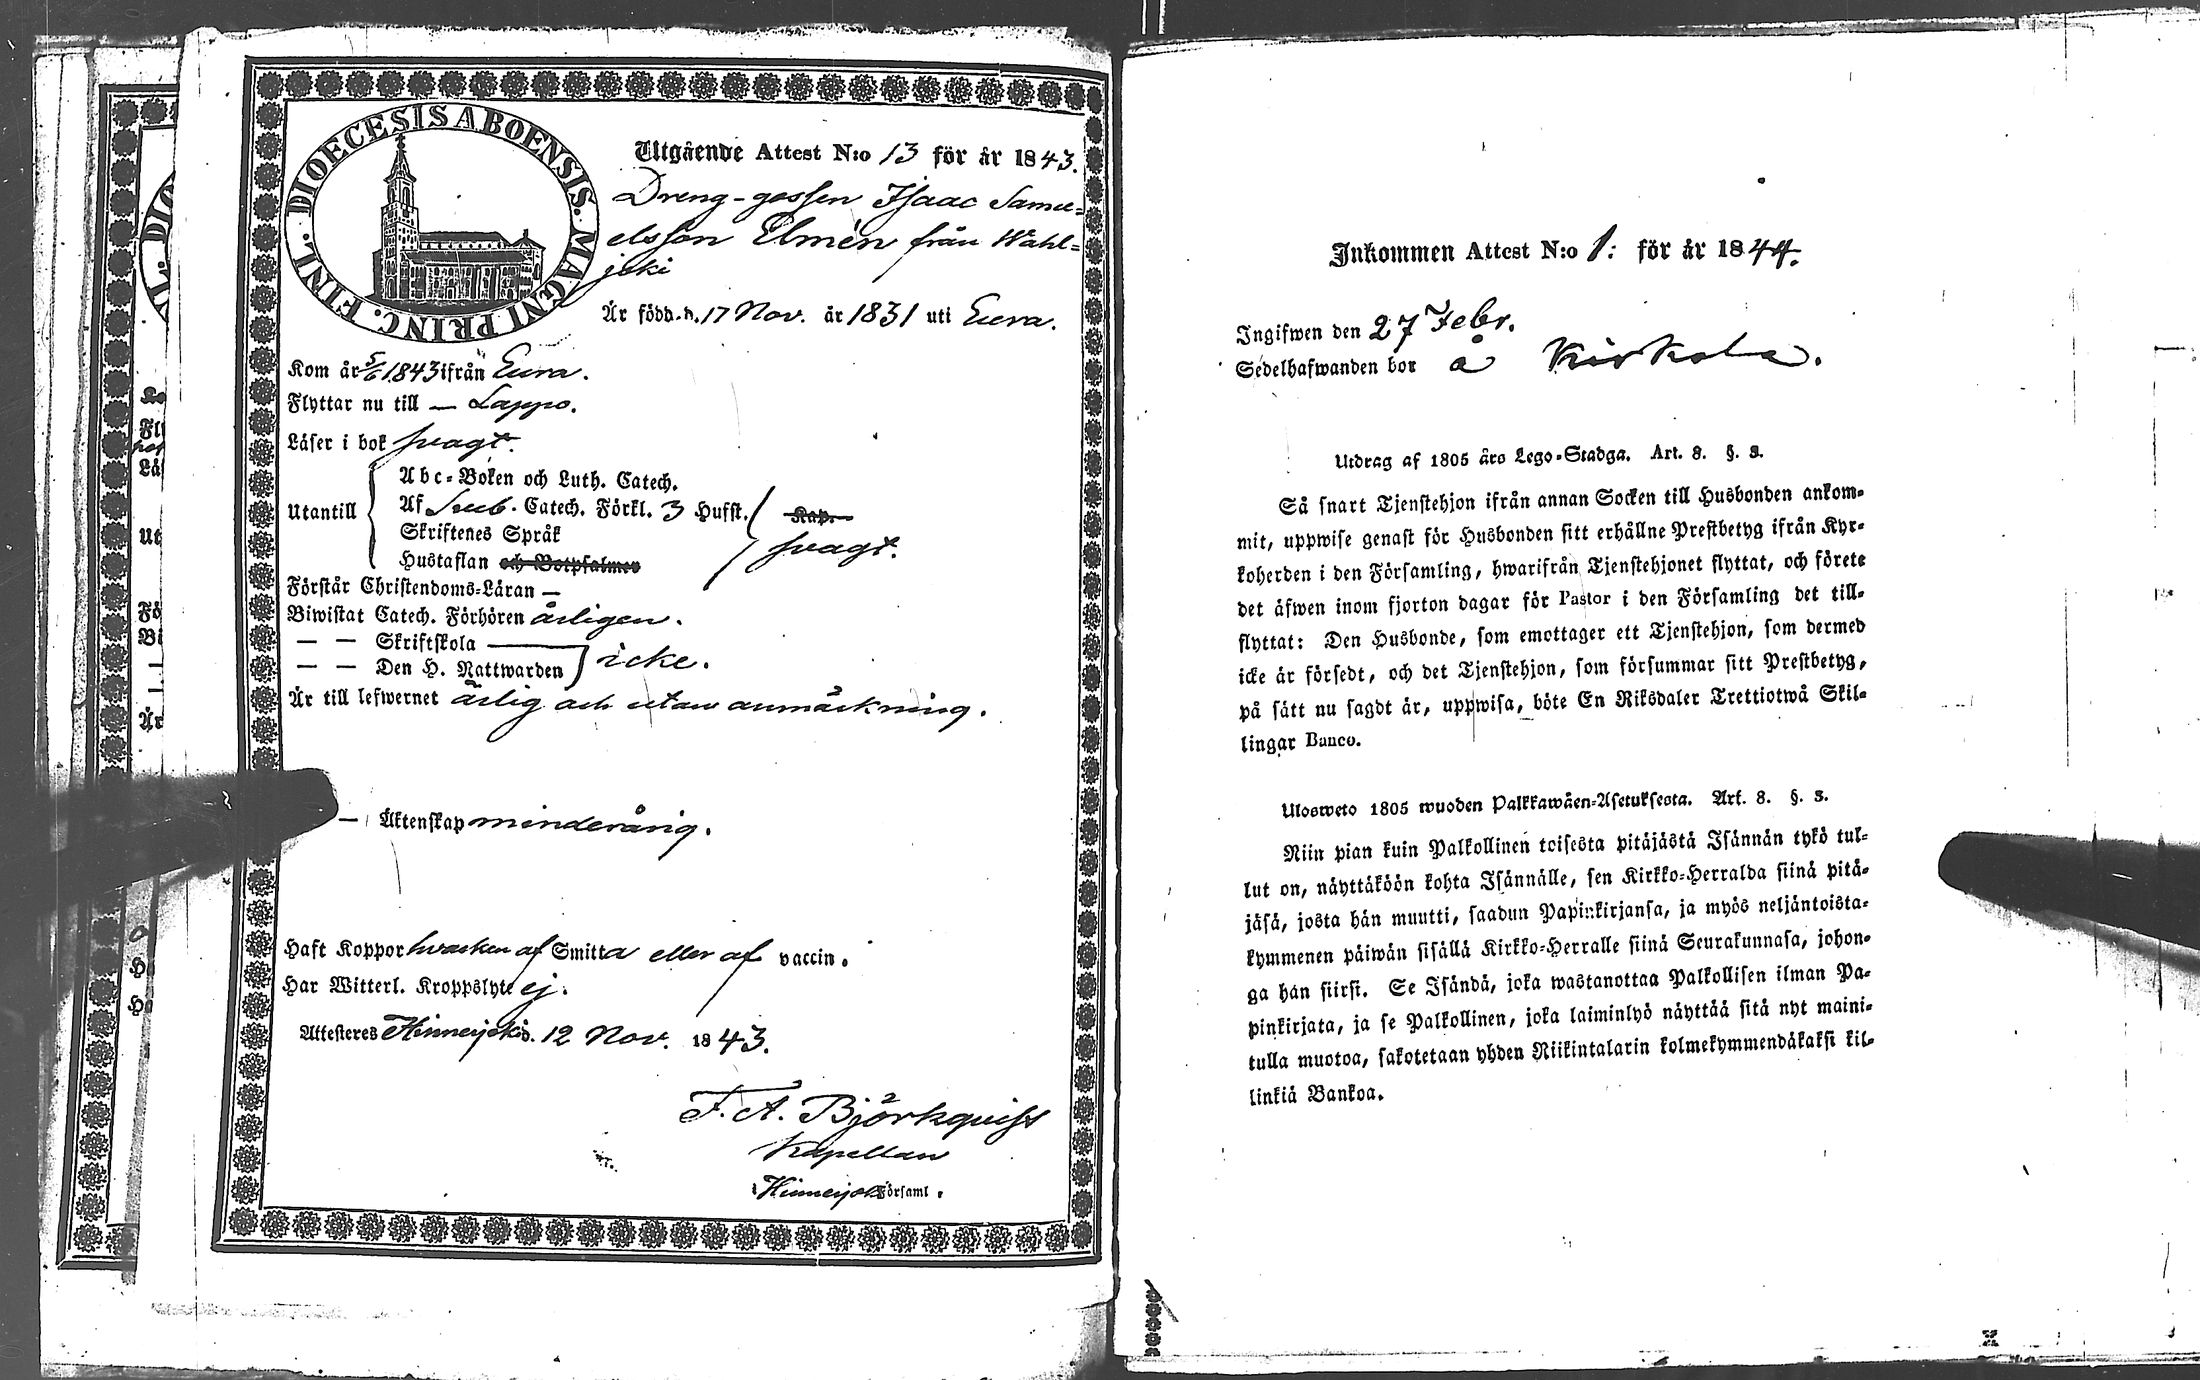 DIOECESIS ABOENSIS. MAGNI PRINC. FINL.
Utgående Attest N:o 13 för år 1843.
Dreng-gossen Isaac Samu-
elsson Elmén från Wahl-
joki
Är född d. 17 Nov. år 1831 uti Eura.
Kom år 5/6 1843 ifrån Eura.
Flyttar nu till — Lappo.
Läser i bok svagt.
Utantill
Abc-Boken och Luth. Catech.
Af Sveb. Catech. Förkl. 3 Hufst. Kap.
Skriftenes Språk
svagt.
Hustaflan och Botpsalmer
Förstår Christendoms-Läran —
Biwistat Catech. Förhören årligen.
— — Skriftskola
— — Den H. Nattwarden icke.
Är till lefwernet ärlig och utan anmärkning.
— Äktenskap minderårig.
Haft Koppor hvarken af Smitta eller af vaccin.
Har Witterl. Kroppslyte ej.
Attesteres Hinnerjoki d. 12 Nov. 1843.
F. A. Björkqvist
Kapellan
i Hinnerjoki Församl.
Inkommen Attest N:o 1: för år 1844.
Ingifwen den 27 Febr.
Sedelhafwanden bor å Kirkola.
Utdrag af 1805 års Lego-Stadga. Art. 8. §. 3.
Så snart Tjenstehjon ifrån annan Socken till Husbonden ankom-
mit, uppwise genast för Husbonden sitt erhållne Prestbetyg ifrån Kyr-
koherden i den Församling, hwarifrån Tjenstehjonet flyttat, och förete
det äfwen inom fjorton dagar för Pastor i den Församling det till-
flyttat: Den Husbonde, som emottager ett Tjenstehjon, som dermed
icke är försedt, och det Tjenstehjon, som försummar sitt Prestbetyg,
på sätt nu sagdt är, uppwisa, böte En Riksdaler Trettiotwå Skil-
lingar Banco.
Ulosweto 1805 wuoden Palkkawäen-Asetuksesta. Art. 8. §. 3.
Niin pian kuin Palkollinen toisesta pitäjästä Isännän tykö tul-
lut on, näyttäköön kohta Isännälle, sen Kirkko-Herralda siinä pitä-
jäsä, josta hän muutti, saadun Papinkirjansa, ja myös neljäntoista-
kymmenen päiwän sisällä Kirkko-Herralle siinä Seurakunnasa, johon-
ga hän siirsi. Se Isändä, joka wastanottaa Palkollisen ilman Pa-
pinkirjata, ja se Palkollinen, joka laiminlyö näyttää sitä nyt maini-
tulla muotoa, sakotetaan yhden Riikintalarin kolmekymmendäkaksi kil-
linkiä Bankoa.